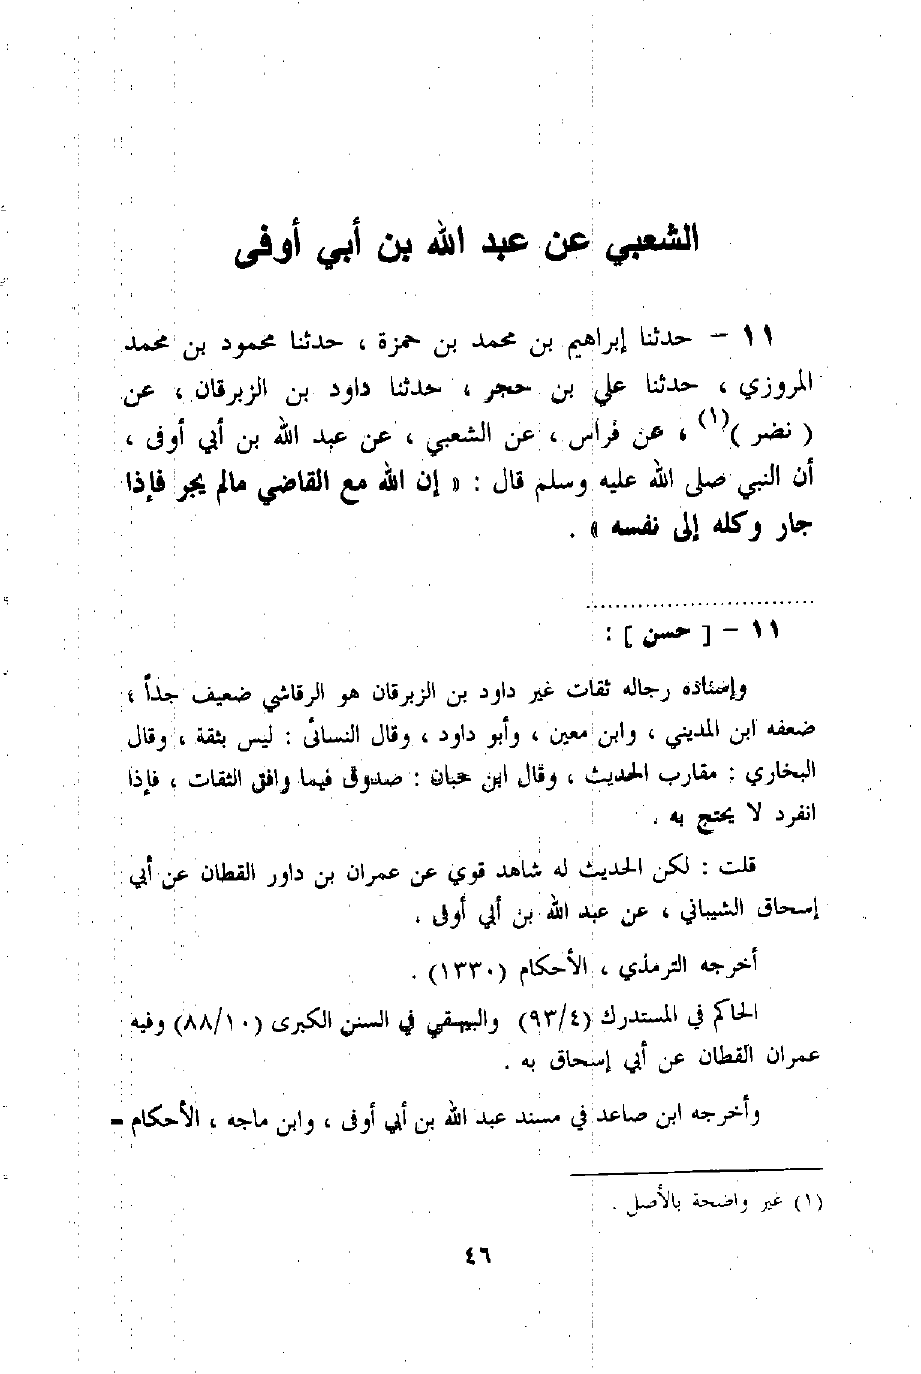 الشعبي عن عبد الله بن أبي أوفى
١١ – حدثنا إبراهيم بن محمد بن حمزة ، حدثنا محمود بن محمد
المروزي ، حدثنا علي بن حجر ، حدثنا داود بن الزبرقان ، عن
( نضر )(١) ، عن فراس ، عن الشعبي ، عن عبد الله بن أبي أوفى ،
أن النبي صلى الله عليه وسلم قال : « إن الله مع القاضي مالم يجر فإذا
جار وكله إلى نفسه » .
١١ – [ حسن ] :
وإسناده رجاله ثقات غير داود بن الزبرقان هو الرقاشي ضعيف جداً ،
ضعفه ابن المديني ، وابن معين ، وأبو داود ، وقال النسائى : ليس بثقة ، وقال
البخاري : مقارب الحديث ، وقال ابن حبان : صدوق فيما وافق الثقات ، فإذا
انفرد لا يحتج به .
قلت : لكن الحديث له شاهد قوي عن عمران بن داور القطان عن أبي
إسحاق الشيباني ، عن عبد الله بن أبي أوفى .
أخرجه الترمذي ، الأحكام (١٣٣٠) .
الحاكم في المستدرك (٩٣/٤) والبيهقي في السنن الكبرى (٨٨/١٠) وفيه
عمران القطان عن أبي إسحاق به .
وأخرجه ابن صاعد في مسند عبد الله بن أبي أوفى ، وابن ماجه ، الأحكام =
(١) غير واضحة بالأصل .
٤٦